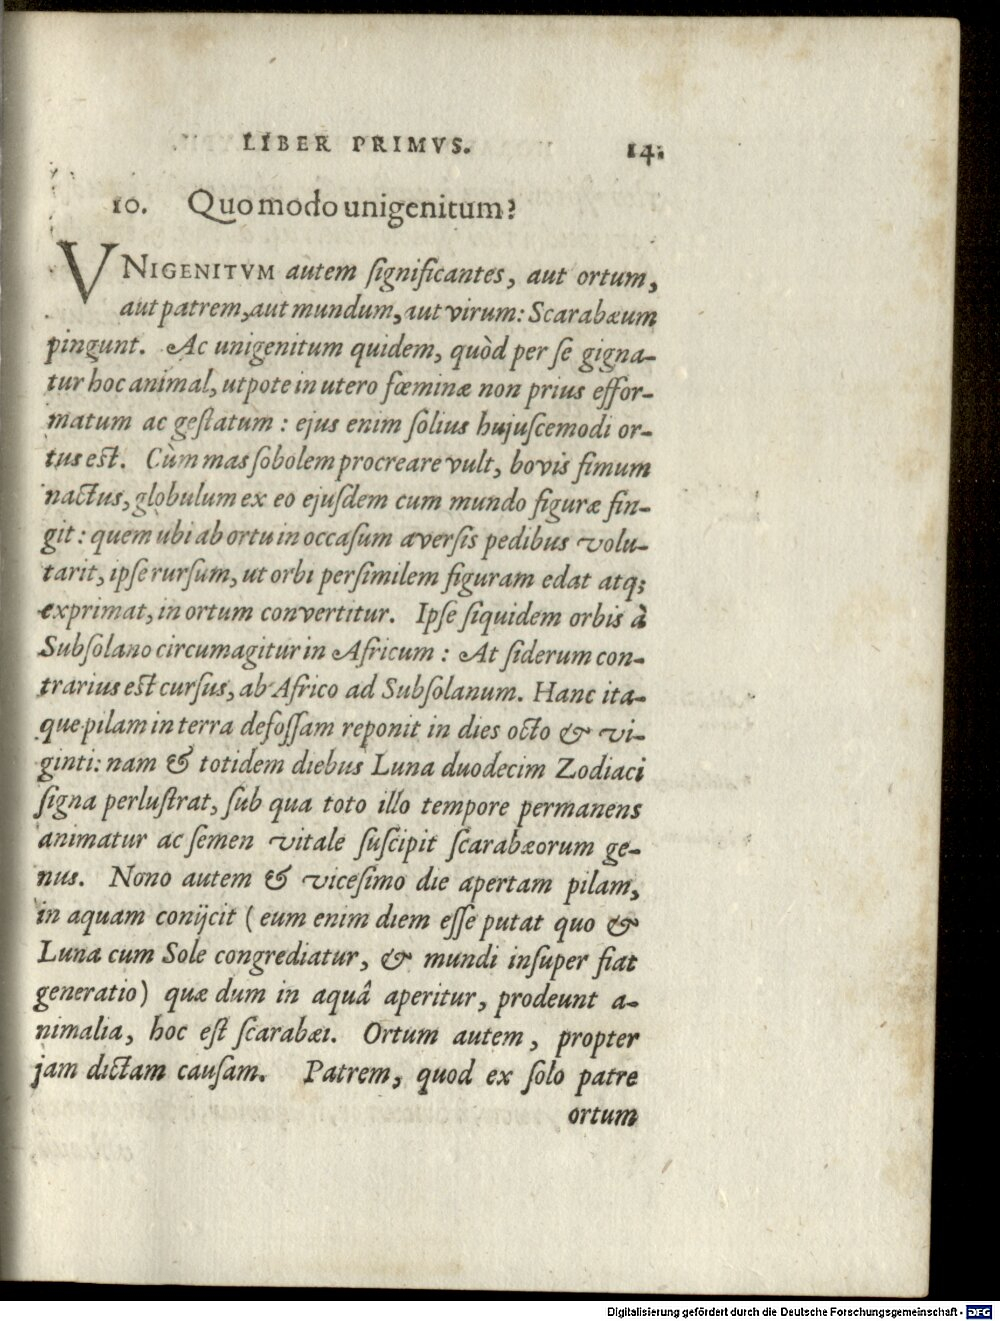 LIBER PRIMVS. 14.
10. Quomodo unigenitum?
VNIGENITVM autem ſignificantes, aut ortum,
aut patrem, aut mundum, aut virum: Scarabæum
pingunt. Ac unigenitum quidem, quòd per ſe gigna-
tur hoc animal, utpote in utero fœminæ non prius effor-
matum ac geſtatum : ejus enim ſolius hujuſcemodi or-
tus est. Cùm mas ſobolem procreare vult, bovis fimum
nactus, globulum ex eo ejuſdem cum mundo figuræ fin-
git : quem ubi ab ortu in occaſum aversis pedibus volu-
tarit, ipſe rurſum, ut orbi perſimilem figuram edat atq;
exprimat, in ortum convertitur. Ipſe ſiquidem orbis à
Subſolano circumagitur in Africum : At ſiderum con-
trarius est curſus, ab Africo ad Subſolanum. Hanc ita-
que pilam in terra defoſſam reponit in dies octo & vi-
ginti: nam & totidem diebus Luna duodecim Zodiaci
ſigna perluſtrat, ſub qua toto illo tempore permanens
animatur ac ſemen vitale ſuſcipit ſcarabæorum ge-
nus. Nono autem & viceſimo die apertam pilam,
in aquam conijcit ( eum enim diem eſſe putat quo &
Luna cum Sole congrediatur, & mundi inſuper fiat
generatio) quæ dum in aquâ aperitur, prodeunt a-
nimalia, hoc eſt ſcarabæi. Ortum autem, propter
jam dictam cauſam. Patrem, quod ex ſolo patre
ortum
Digitalisierung gefördert durch die Deutsche Forschungsgemeinschaft - DFG